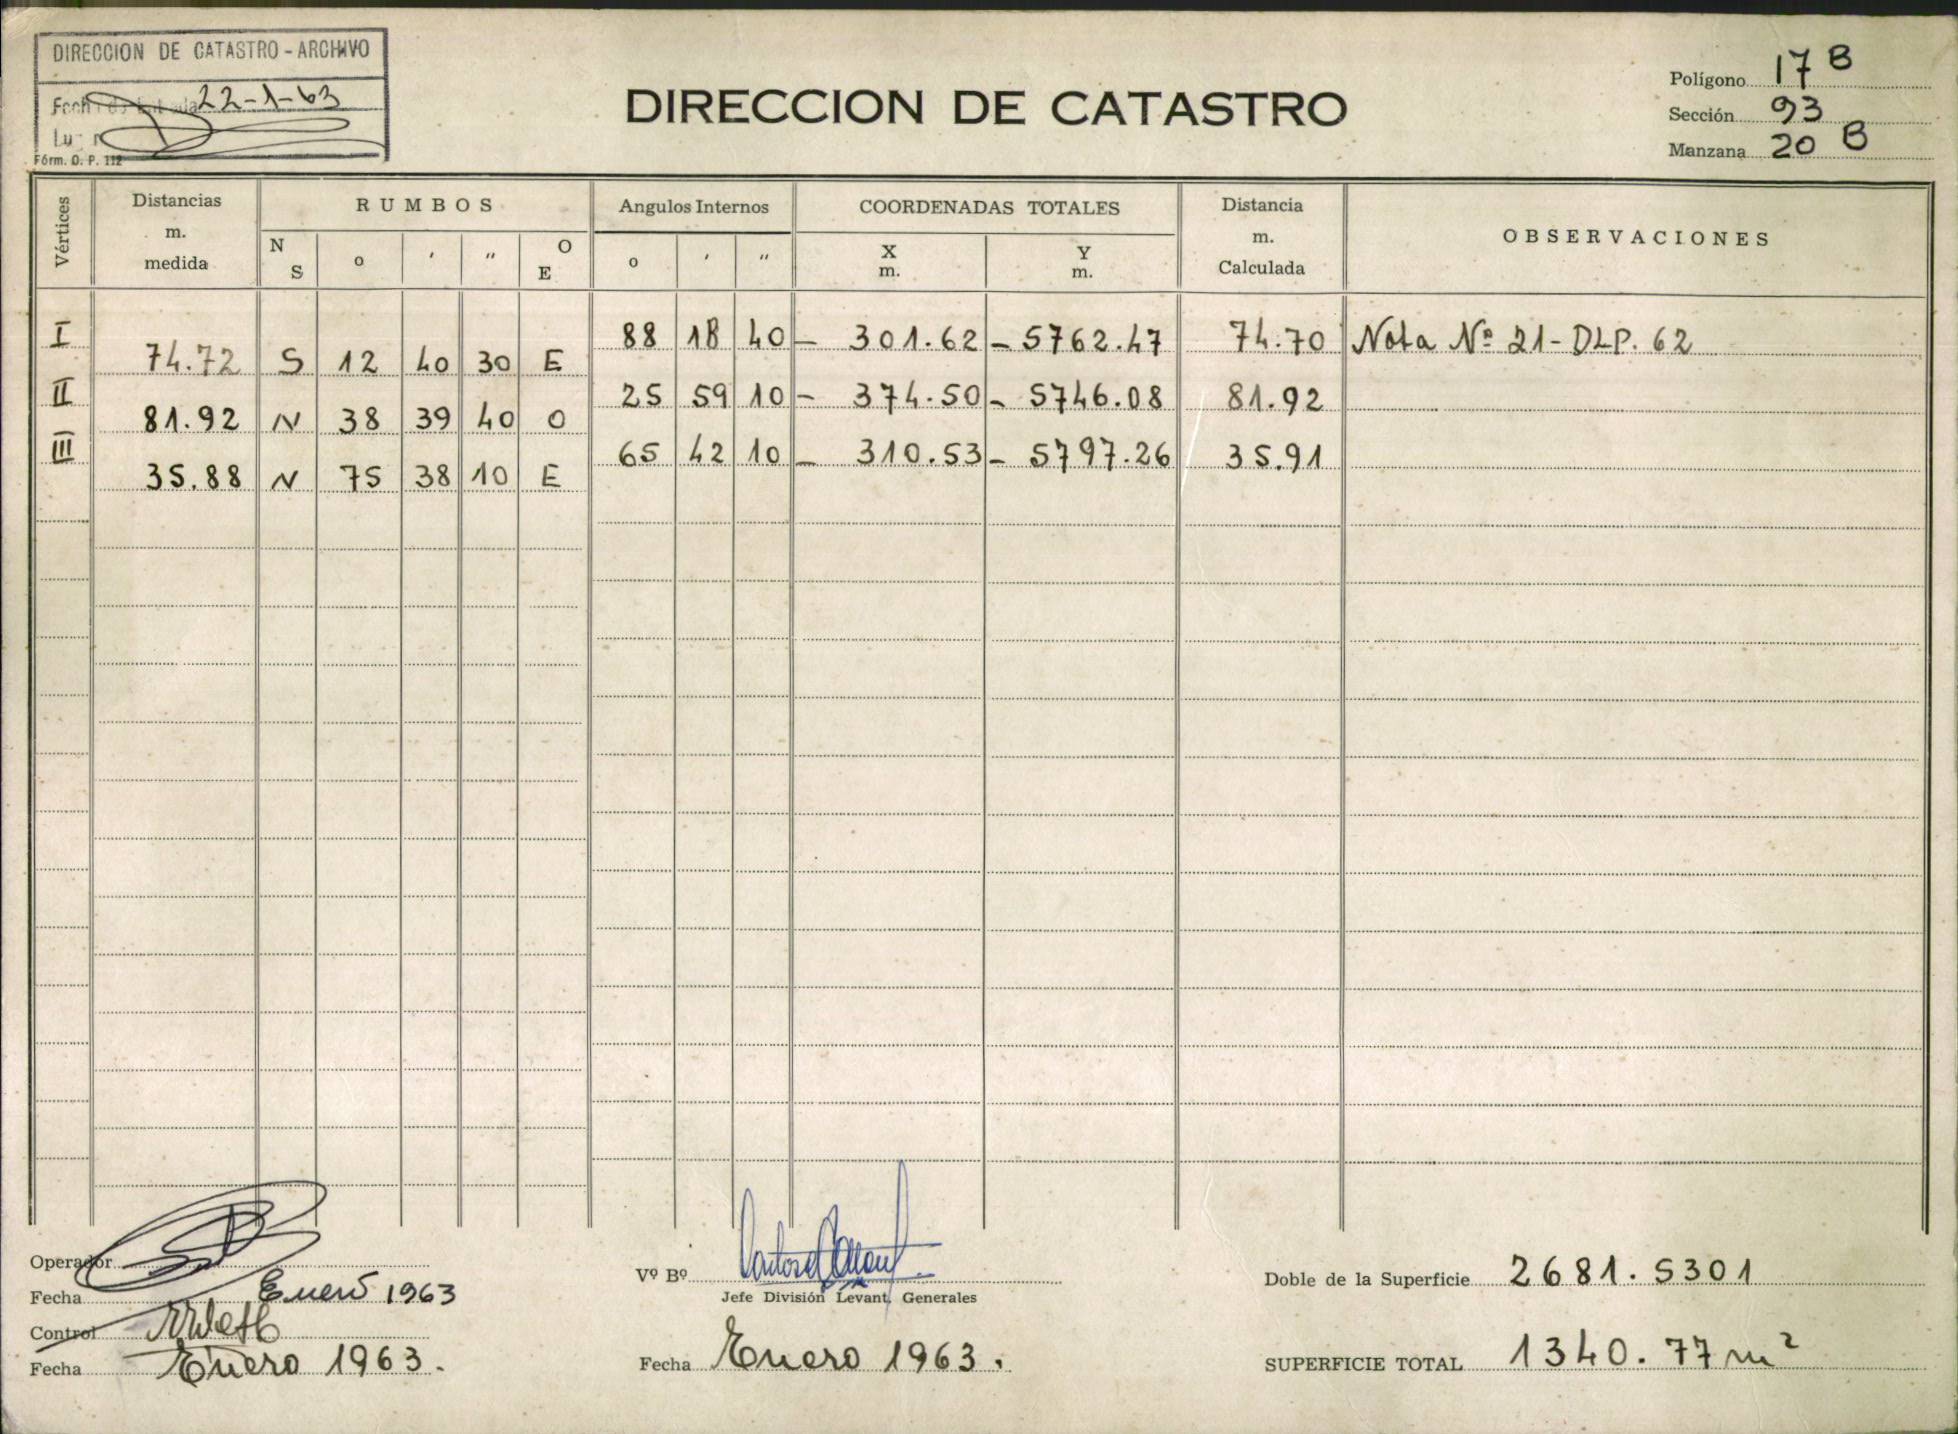 DIRECCION DE CATASTRO - ARCHIVO
22-1-63
Fórm. O. P. 112
DIRECCION DE CATASTRO
Polígono 17 B
Sección 93
Manzana 20 B
Vértices
Distancias m. medida
RUMBOS
N S
o
'
"
O E
Angulos Internos
o
'
"
COORDENADAS TOTALES
X m.
Y m.
Distancia m. Calculada
OBSERVACIONES
I 88 18 40 - 301.62 - 5762.47 74.70 Nota Nº 21- DLP. 62
74.72 S 12 40 30 E
II 25 59 10 - 374.50 - 5746.08 81.92
81.92 N 38 39 40 O
III 65 42 10 - 310.53 - 5797.26 35.91
35.88 N 75 38 10 E
Operador
Fecha Enero 1963
Control
Fecha Enero 1963.
Vº Bº
Jefe División Levant. Generales
Fecha Enero 1963.
Doble de la Superficie 2681.5301
SUPERFICIE TOTAL 1340.77 m²